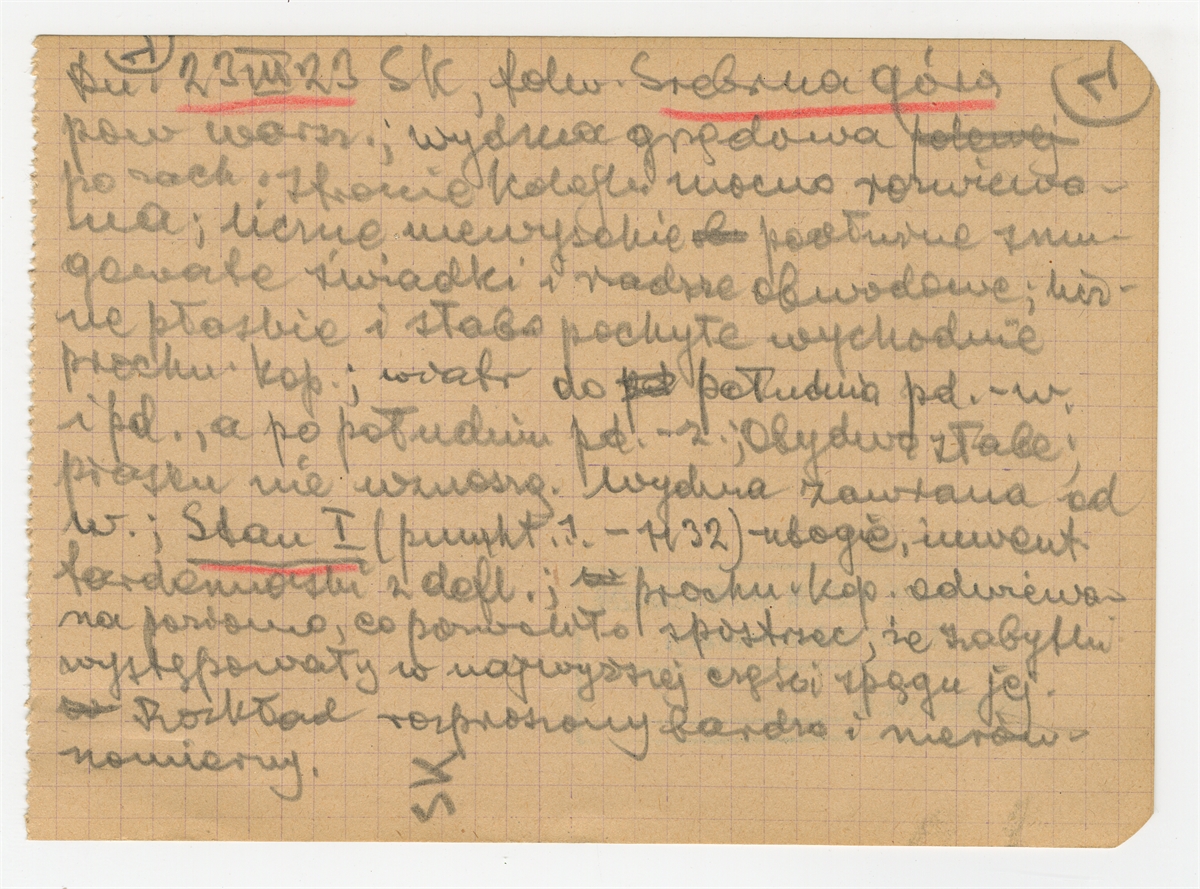 Dn. 23 VIII 23 SK, folw. Srebrna góra 1
pow warsz.; wydma grzędowa polewej
po zach. stronie kolejki mocno rozwiewa-
na; liczne niewysokie podłużne smu-
gowate świadki i rzadsze obwodowe; licz-
ne płaskie i słabo pochyłe wychodnie
próchn. kop.; wiatr do południa pd.-w.
i pd., a po południu pd.-z.; Obydwa słabe;
piasku nie wznoszą. Wydma zawiana od
w.; Stan I (punkt. 1. – 1132) - ubogie, inwent
tardenuaski z defl.; próchn. kop. odwiewa-
na poziomo, co pozwoliło spostrzec, że zabytki
występowały w najwyższej części spągu jej.
Rozkład rozproszony bardzo i nierów-
nomierny.
SK